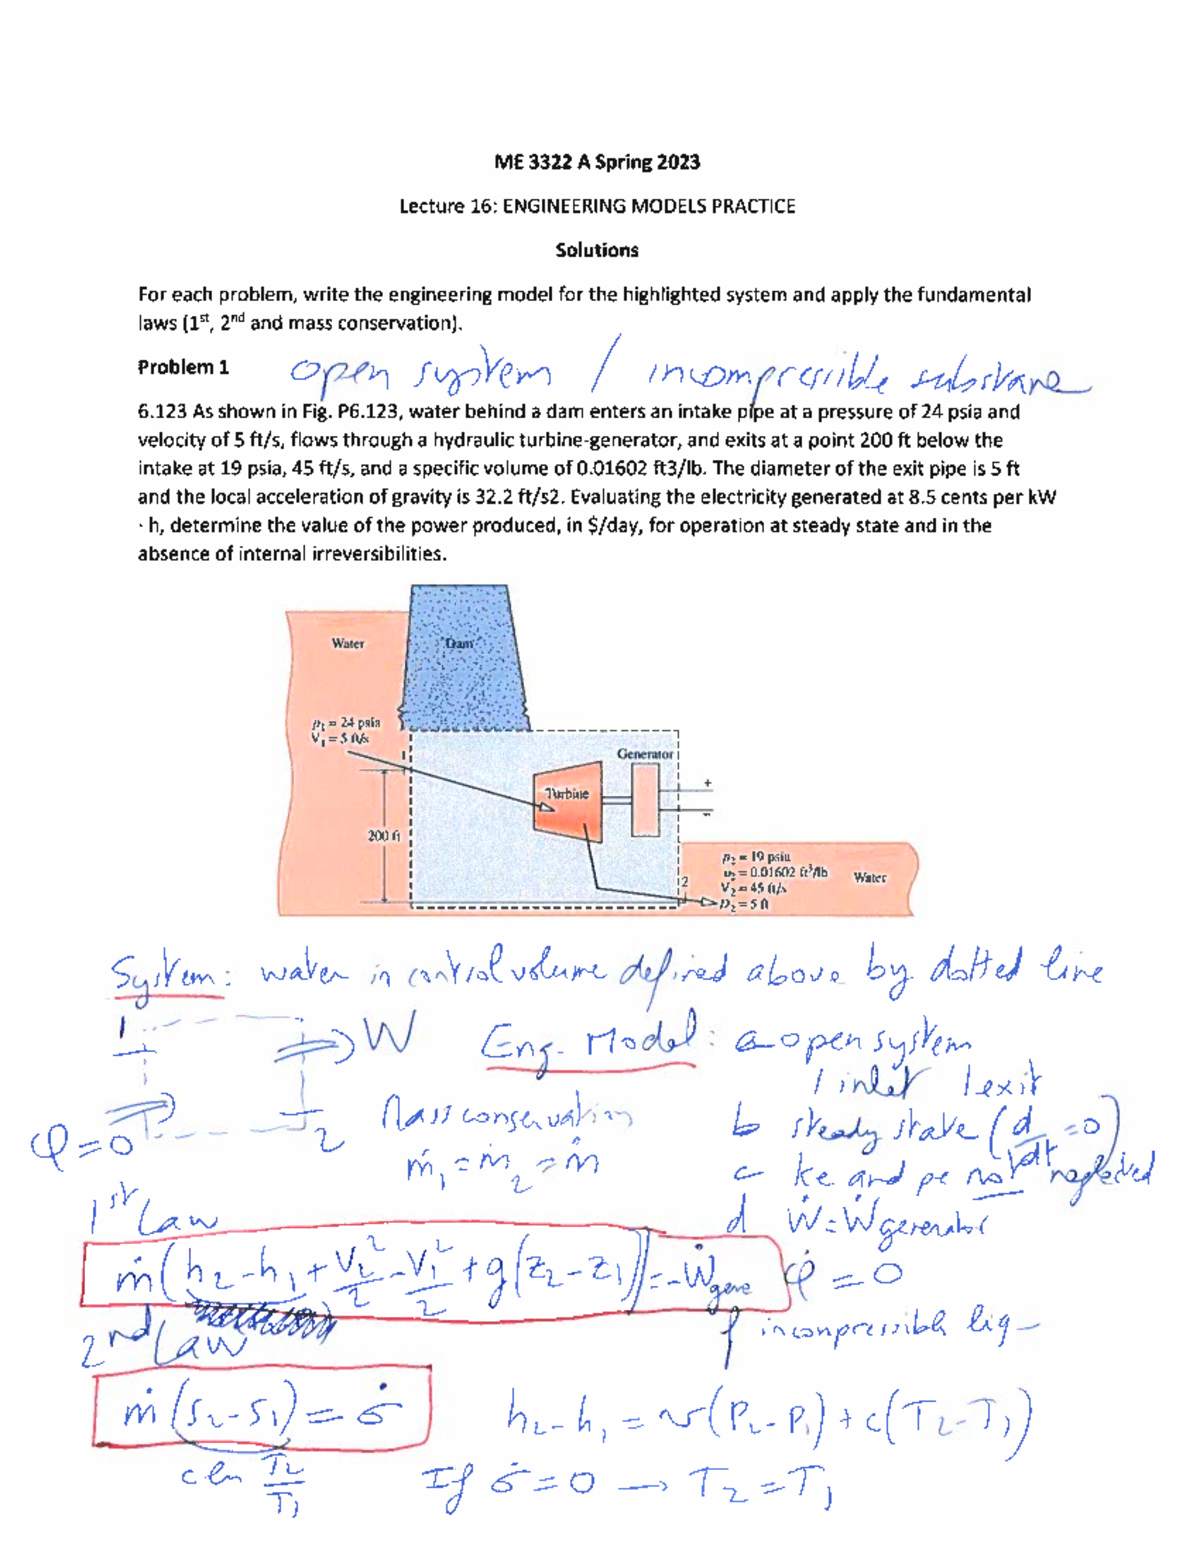 ME 3322 A Spring 2023
Lecture 16: ENGINEERING MODELS PRACTICE
Solutions
For each problem, write the engineering model for the highlighted system and apply the fundamental
laws (1st, 2nd and mass conservation).
Problem 1 open system / incompressible substance
6.123 As shown in Fig. P6.123, water behind a dam enters an intake pipe at a pressure of 24 psia and
velocity of 5 ft/s, flows through a hydraulic turbine-generator, and exits at a point 200 ft below the
intake at 19 psia, 45 ft/s, and a specific volume of 0.01602 ft3/lb. The diameter of the exit pipe is 5 ft
and the local acceleration of gravity is 32.2 ft/s2. Evaluating the electricity generated at 8.5 cents per kW
· h, determine the value of the power produced, in $/day, for operation at steady state and in the
absence of internal irreversibilities.
Water
Dam
p₁ = 24 psia
V₁ = 5 ft/s
1
Generator
Turbine
+
–
200 ft
p₂ = 19 psia
v₂ = 0.01602 ft³/lb
V₂ = 45 ft/s
D₂ = 5 ft
Water
2
System: water in control volume defined above by dotted line
1 W Eng. Model: a open system
1 inlet 1 exit
φ = 0 2 Mass conservation b steady state (d/dt = 0)
ṁ₁ = ṁ₂ = ṁ c ke and pe not neglected
1st Law d Ẇ = Ẇ generator
ṁ(h₂ - h₁ + V₂²/2 - V₁²/2 + g(z₂ - z₁)) = -Ẇgene φ̇ = 0
2nd Law f incompressible liq
ṁ(s₂ - s₁) = σ̇ h₂ - h₁ = v(P₂ - P₁) + c(T₂ - T₁)
c ln T₂/T₁ If σ̇ = 0 → T₂ = T₁